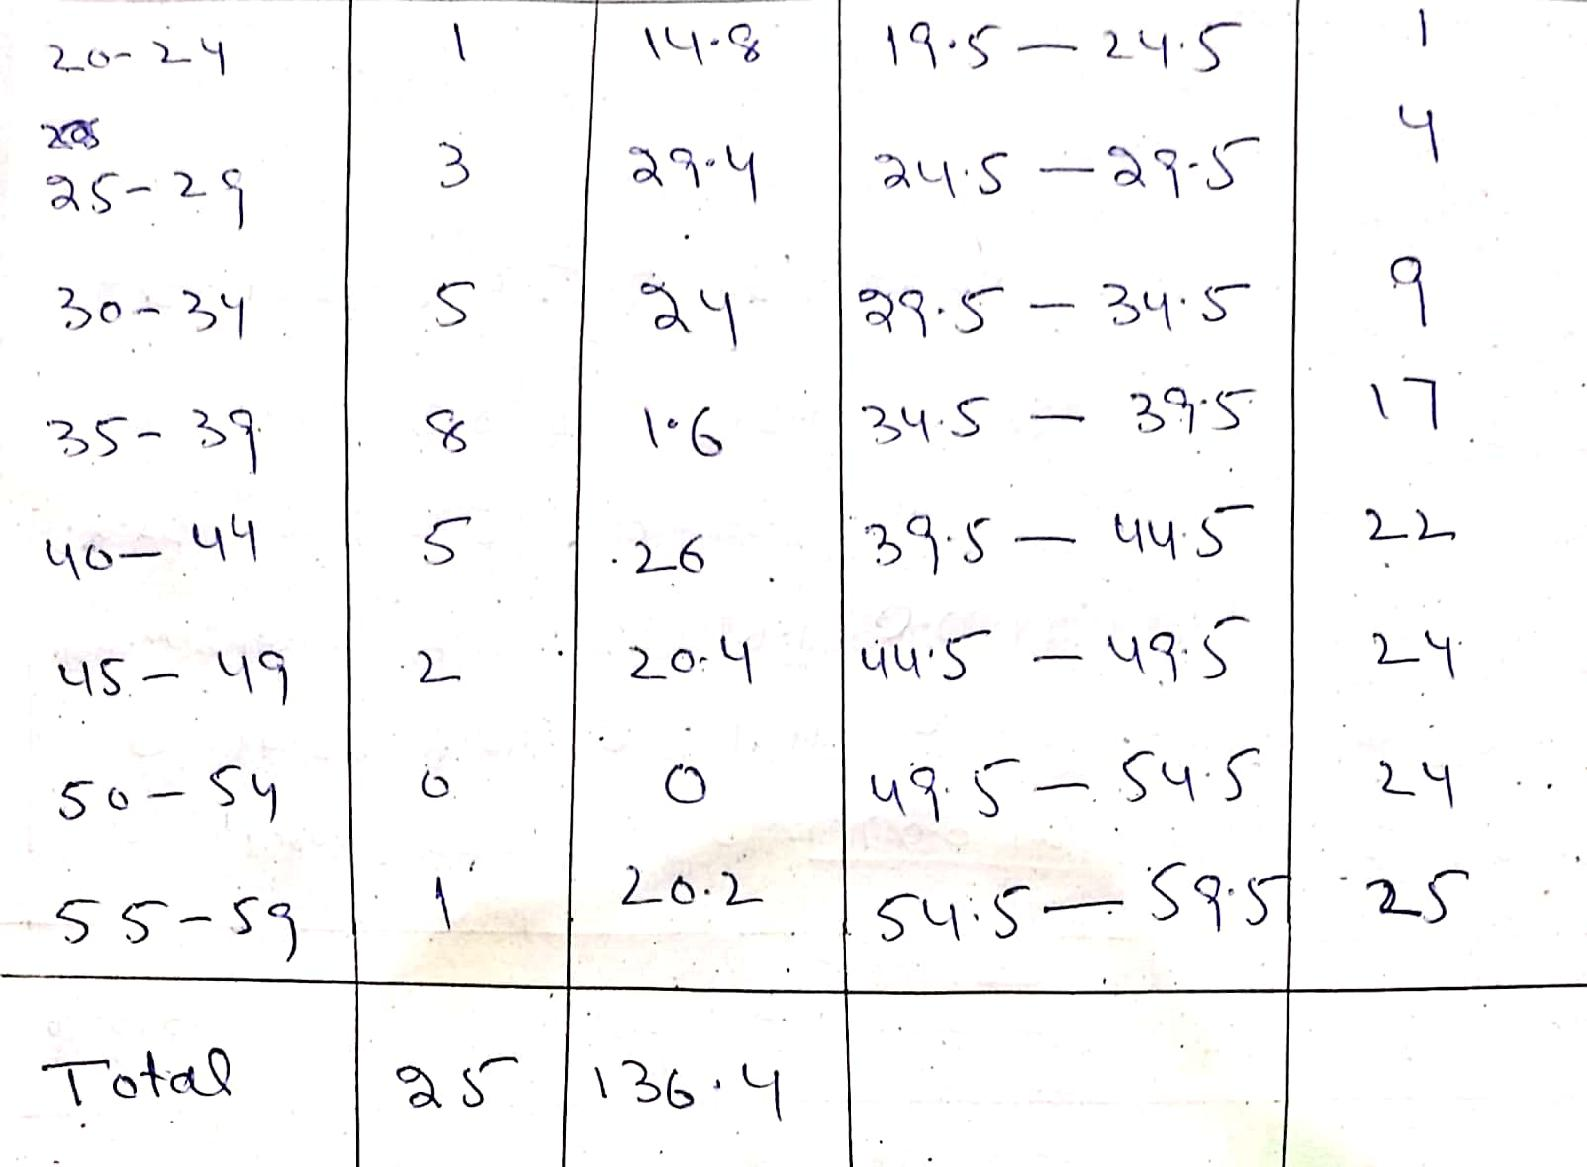 20-24 1 14.8 19.5 — 24.5 1
25-29 3 29.4 24.5 — 29.5 4
30-34 5 24 29.5 — 34.5 9
35-39 8 1.6 34.5 — 39.5 17
40-44 5 26 39.5 — 44.5 22
45-49 2 20.4 44.5 — 49.5 24
50-54 0 0 49.5 — 54.5 24
55-59 1 20.2 54.5 — 59.5 25
Total 25 136.4